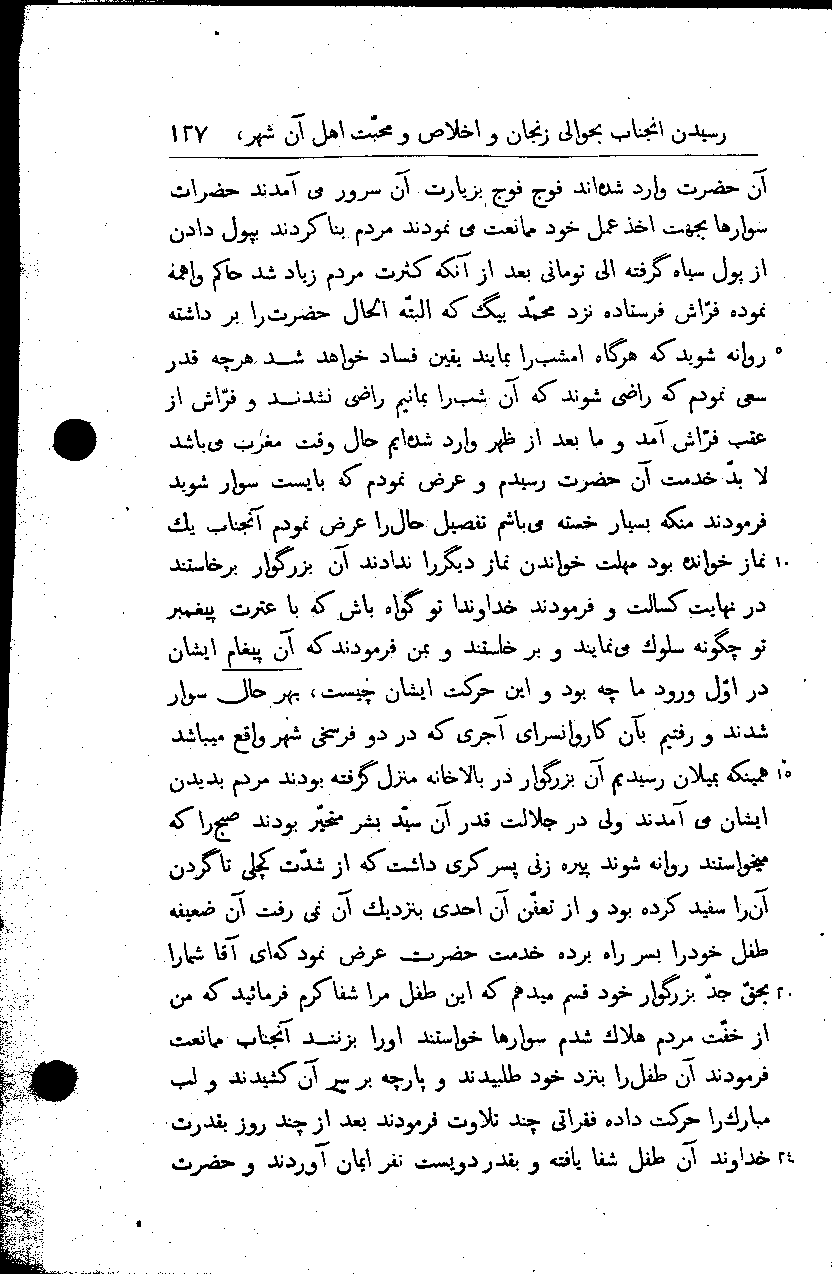 رسیدن آنجناب بحوالی زنجان و اخلاص و محبّت اهل آن شهر، ۱۲۷
آن حضرت وارد شده‌اند فوج فوج بزیارت آن سرور می آمدند حضرات
سوارها بجهت اخذ عمل خود ممانعت می نمودند مردم بنا کردند بپول دادن
از پول سیاه گرفته الی تومانی بعد از آنکه کثرت مردم زیاد شد حاکم واهمه
نموده فرّاش فرستاده نزد محمّد بیگ که البتّه الحال حضرت را بر داشته
۵ روانه شوید که هرگاه امشب را بمایند یقین فساد خواهد شد هرچه قدر
سعی نمودم که راضی شوند که آن شب را بمانیم راضی نشدند و فرّاش از
عقب فرّاش آمد و ما بعد از ظهر وارد شده‌ایم حال وقت مغرب می‌باشد
لا بدّ خدمت آن حضرت رسیدم و عرض نمودم که بایست سوار شوید
فرمودند منکه بسیار خسته می‌باشم تفصیل حال را عرض نمودم آنجناب یك
۱۰ نماز خوانده بود مهلت خواندن نماز دیگر را ندادند آن بزرگوار برخاستند
در نهایت کسالت و فرمودند خداوندا تو گواه باش که با عترت پیغمبر
تو چگونه سلوك می‌نمایند و بر خاستند و بمن فرمودند که آن پیغام ایشان
در اوّل ورود ما چه بود و این حرکت ایشان چیست، بهر حال سوار
شدند و رفتیم بآن کاروانسرای آجری که در دو فرسخی شهر واقع میباشد
۱۵ همینکه بمیلان رسیدیم آن بزرگوار در بالاخانه منزل گرفته بودند مردم بدیدن
ایشان می آمدند ولی در جلالت قدر آن سیّد بشر متحیّر بودند صبح را که
میخواستند روانه شوند پیره زنی پسر کری داشت که از شدّت کچلی تا گردن
آن را سفید کرده بود و از تعفّن آن احدی بنزدیك آن نمی رفت آن ضعیفه
طفل خود را بسر راه برده خدمت حضرت عرض نمود که ای آقا شما را
۲۰ بحقّ جدّ بزرگوار خود قسم میدهم که این طفل مرا شفا کرم فرمائید که من
از خفّت مردم هلاك شدم سوارها خواستند او را بزنند آنجناب ممانعت
فرمودند آن طفل را بنزد خود طلبیدند و پارچه بر سر آن کشیدند و لب
مبارك را حرکت داده فقراتی چند تلاوت فرمودند بعد از چند روز بقدرت
۲٤ خداوند آن طفل شفا یافته و بقدر دویست نفر ایمان آوردند و حضرت